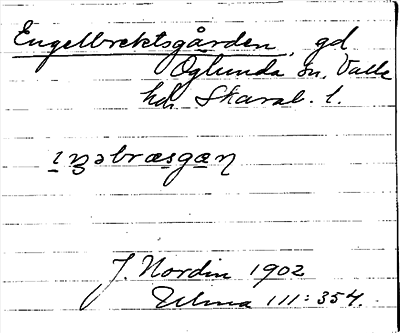 Engelbrektsgården, gd
Öglunda sn, Valle
hd. Skarab. l.
ɪŋəbræsgæɳ
J. Nordin 1902
Ulma 111:354.